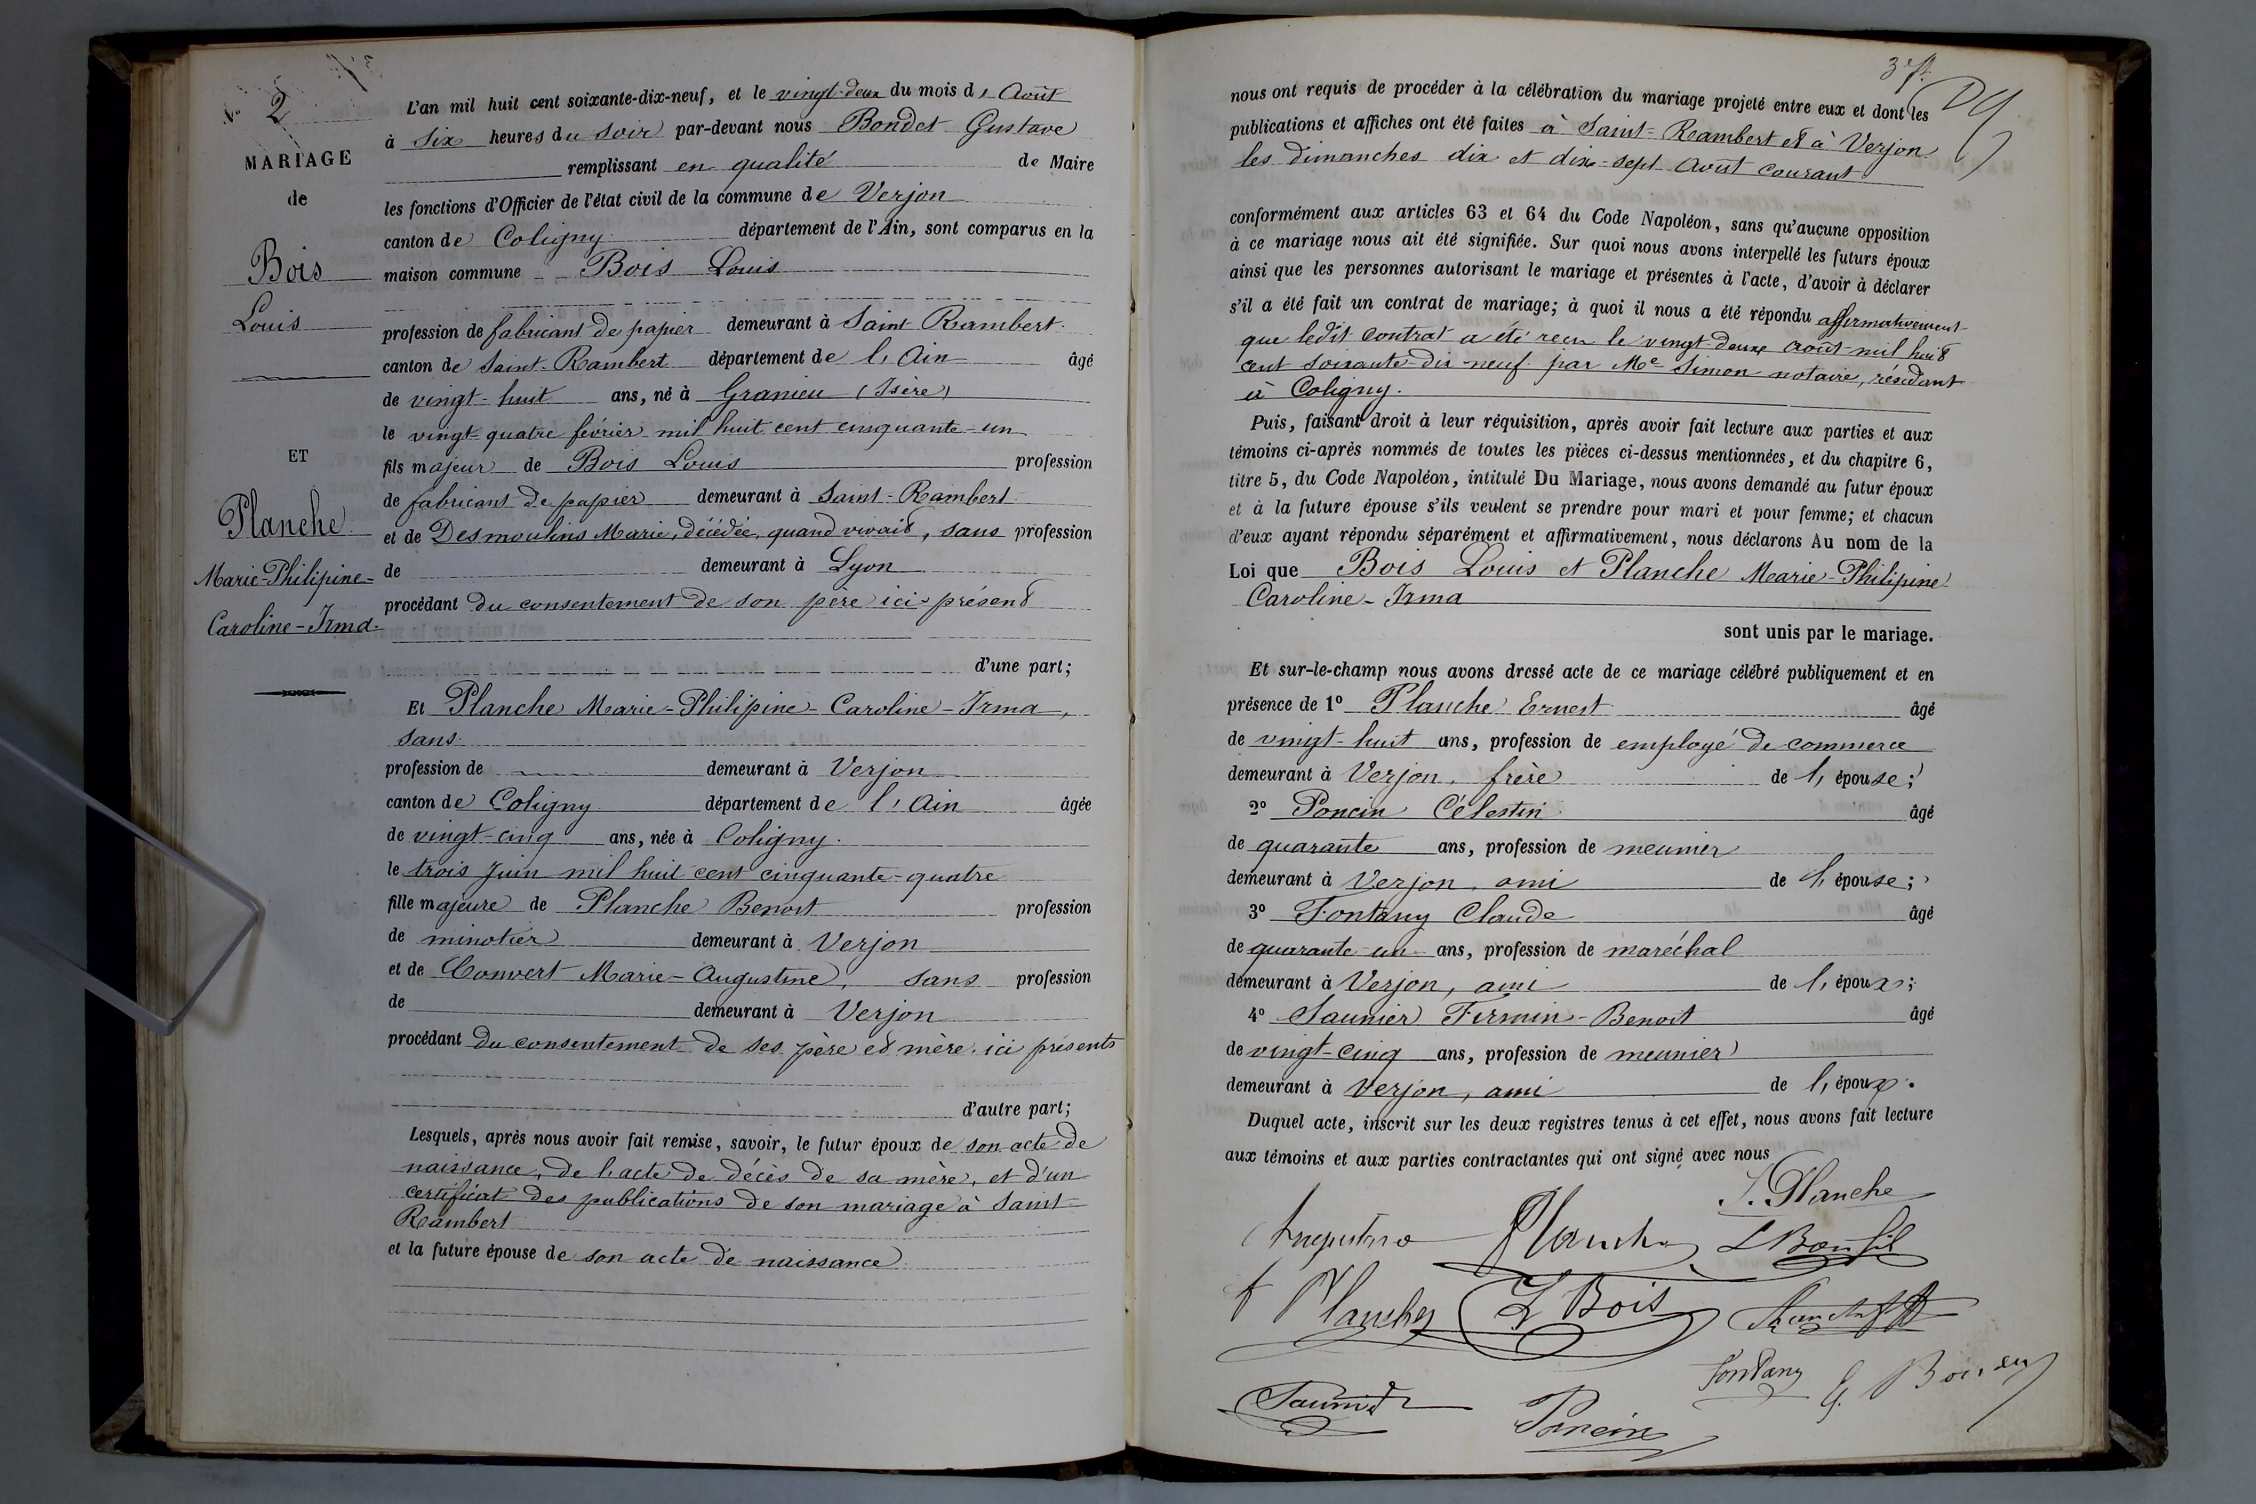 N° 2
MARIAGE
de
Bois
Louis
ET
Planche
Marie-Philipine-
Caroline-Irma.
L'an mil huit cent soixante-dix-neuf, et le vingt-deux du mois d' Août
à six heures du soir par-devant nous Bondet Gustave
remplissant en qualité de Maire
les fonctions d'Officier de l'état civil de la commune de Verjon
canton de Coligny département de l'Ain, sont comparus en la
maison commune Bois Louis
profession de fabricant de papier demeurant à Saint Rambert
canton de Saint-Rambert département de l'Ain âgé
de vingt-huit ans, né à Granieu (Isère)
le vingt-quatre février mil huit cent cinquante-un
fils majeur de Bois Louis profession
de fabricant de papier demeurant à Saint-Rambert
et de Desmoulins Marie, décédée, quand vivait, sans profession
de demeurant à Lyon
procédant du consentement de son père ici présent
d'une part;
Et Planche Marie-Philipine-Caroline-Irma,
sans
profession de demeurant à Verjon
canton de Coligny département de l'Ain âgée
de vingt-cinq ans, née à Coligny
le trois Juin mil huit cent cinquante-quatre
fille majeure de Planche Benoit profession
de minotier demeurant à Verjon
et de Convert Marie-Augustine, sans profession
de demeurant à Verjon
procédant du consentement de ses père et mère ici présents
d'autre part;
Lesquels, après nous avoir fait remise, savoir, le futur époux de son acte de
naissance, de l'acte de décès de sa mère, et d'un
certificat des publications de son mariage à Saint-
Rambert
et la future épouse de son acte de naissance
nous ont requis de procéder à la célébration du mariage projeté entre eux et dont les
publications et affiches ont été faites à Saint-Rambert et à Verjon
les dimanches dix et dix-sept août courant
conformément aux articles 63 et 64 du Code Napoléon, sans qu'aucune opposition
à ce mariage nous ait été signifiée. Sur quoi nous avons interpellé les futurs époux
ainsi que les personnes autorisant le mariage et présentes à l'acte, d'avoir à déclarer
s'il a été fait un contrat de mariage; à quoi il nous a été répondu affirmativement
que ledit contrat a été reçu le vingt-deux août mil huit
cent soixante-dix-neuf par Me Simon notaire, résidant
à Coligny.
Puis, faisant droit à leur réquisition, après avoir fait lecture aux parties et aux
témoins ci-après nommés de toutes les pièces ci-dessus mentionnées, et du chapitre 6,
titre 5, du Code Napoléon, intitulé Du Mariage, nous avons demandé au futur époux
et à la future épouse s'ils veulent se prendre pour mari et pour femme; et chacun
d'eux ayant répondu séparément et affirmativement, nous déclarons Au nom de la
Loi que Bois Louis et Planche Marie-Philipine-
Caroline-Irma
sont unis par le mariage.
Et sur-le-champ nous avons dressé acte de ce mariage célébré publiquement et en
présence de 1° Planche Ernest âgé
de vingt-huit ans, profession de employé de commerce
demeurant à Verjon, frère de l'épouse;
2° Poncin Célestin âgé
de quarante ans, profession de meunier
demeurant à Verjon, ami de l'épouse;
3° Fontany Claude âgé
de quarante-un ans, profession de maréchal
demeurant à Verjon, ami de l'époux;
4° Saunier Firmin-Benoit âgé
de vingt-cinq ans, profession de meunier
demeurant à Verjon, ami de l'époux.
Duquel acte, inscrit sur les deux registres tenus à cet effet, nous avons fait lecture
aux témoins et aux parties contractantes qui ont signé avec nous
I. Planche
Planche
Planche
L Bois
Fontany
Poncin